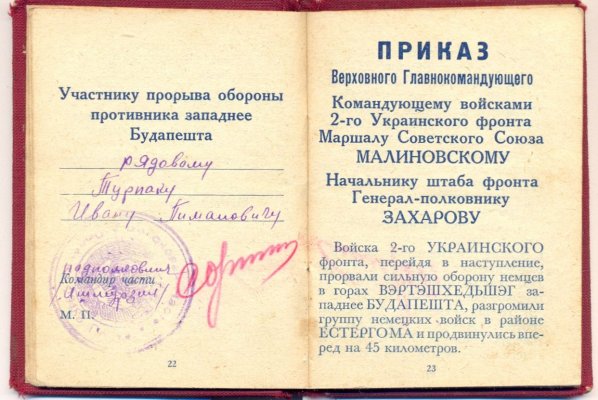 Участнику прорыва обороны
противника западнее
Будапешта
рядовому
Турпаку
Ивану Пимановичу
подполковник
Командир части
М. П.
22
ПРИКАЗ
Верховного Главнокомандующего
Командующему войсками
2-го Украинского фронта
Маршалу Советского Союза
МАЛИНОВСКОМУ
Начальнику штаба фронта
Генерал-полковнику
ЗАХАРОВУ
Войска 2-го УКРАИНСКОГО
фронта, перейдя в наступление,
прорвали сильную оборону немцев
в горах ВЭРТЭШХЕДЬШЭГ за-
паднее БУДАПЕШТА, разгромили
группу немецких войск в районе
ЕСТЕРГОМА и продвинулись впе-
ред на 45 километров.
23